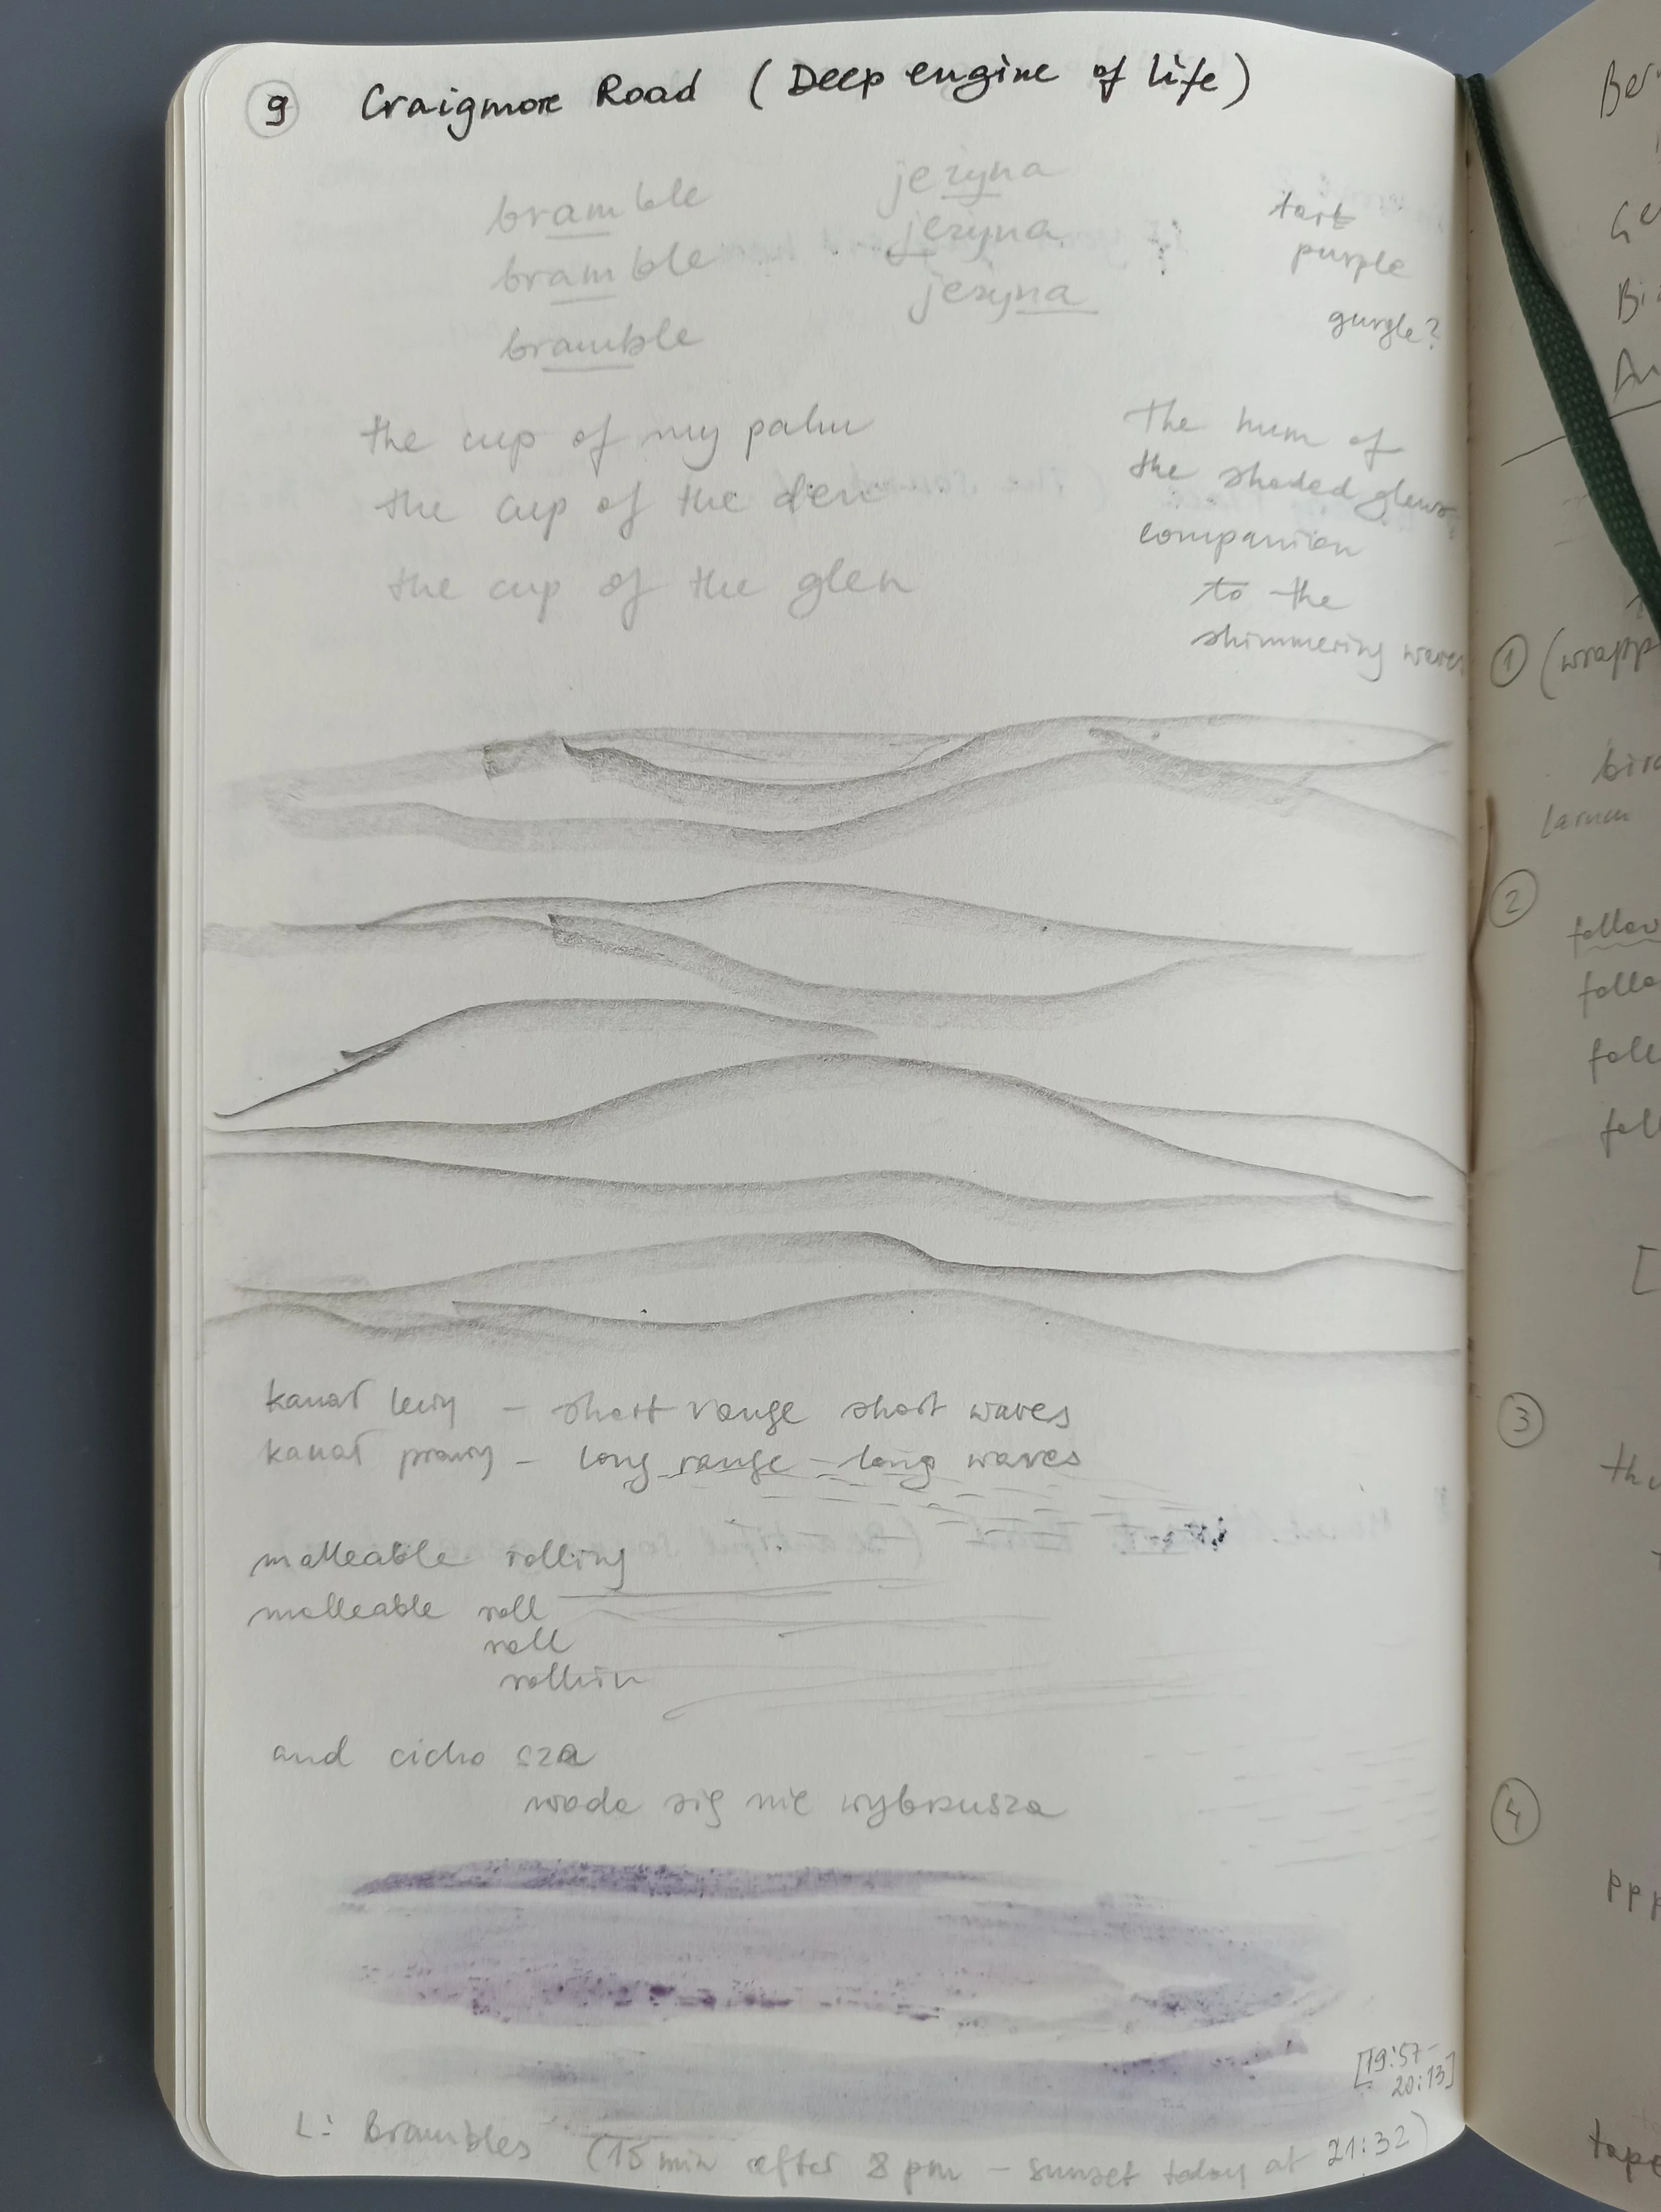 9 Craigmore Road (Deep engine of life)
bramble
bramble
bramble
jeżyna
jeżyna
jeżyna
tart
purple
gurgle?
the cup of my palm
the cup of the den
the cup of the glen
The hum of
the shaded glens,
companion
to the
shimmering waves
kanał lewy – short range short waves
kanał prawy – long range – long waves
malleable rolling
malleable roll
roll
rollin
and cicho sza
woda się nie wybrzusza
[19:57-
20:13]
L: Brambles (15 min after 8 pm – sunset today at 21:32)
Ber
Bi
1 (wrapp
bird
larum
2
follow
follo
foll
foll
[
3
4
ppp
tape